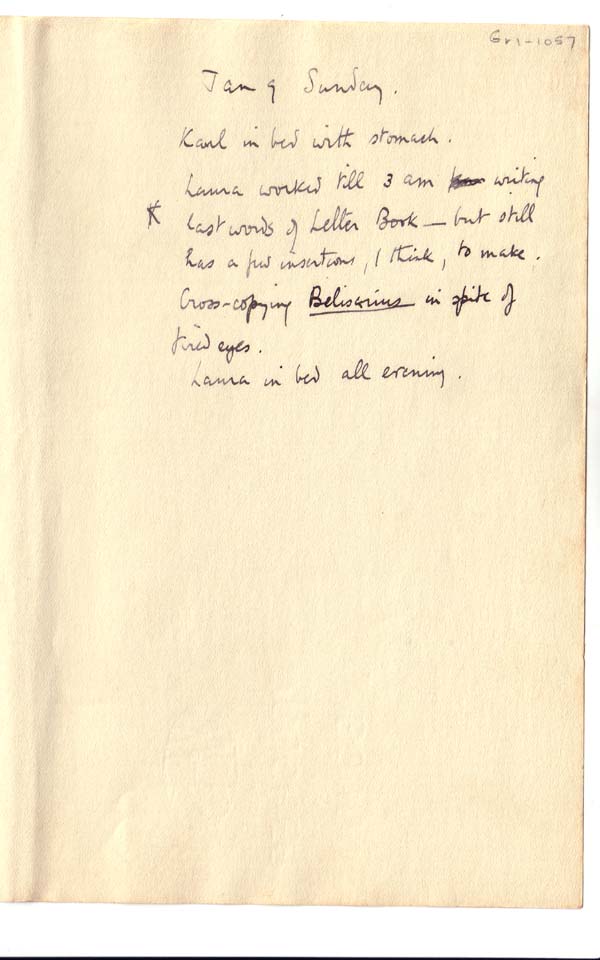 Gr1-1057
Jan 9 Sunday.
Karl in bed with stomach.
Laura worked till 3 am writing
last words of Letter Book — but still
has a few insertions, I think, to make.
Cross-copying Belisarius in spite of
tired eyes.
Laura in bed all evening.